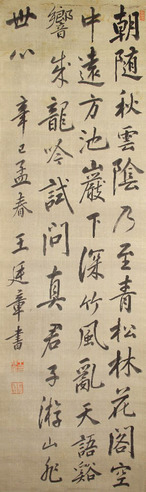 朝随秋雲陰乃至青松林花閣空
中遠方池巖下深竹風亂天語谿
響成龍吟試問真君子游山非
世心
辛巳孟春王廷章書